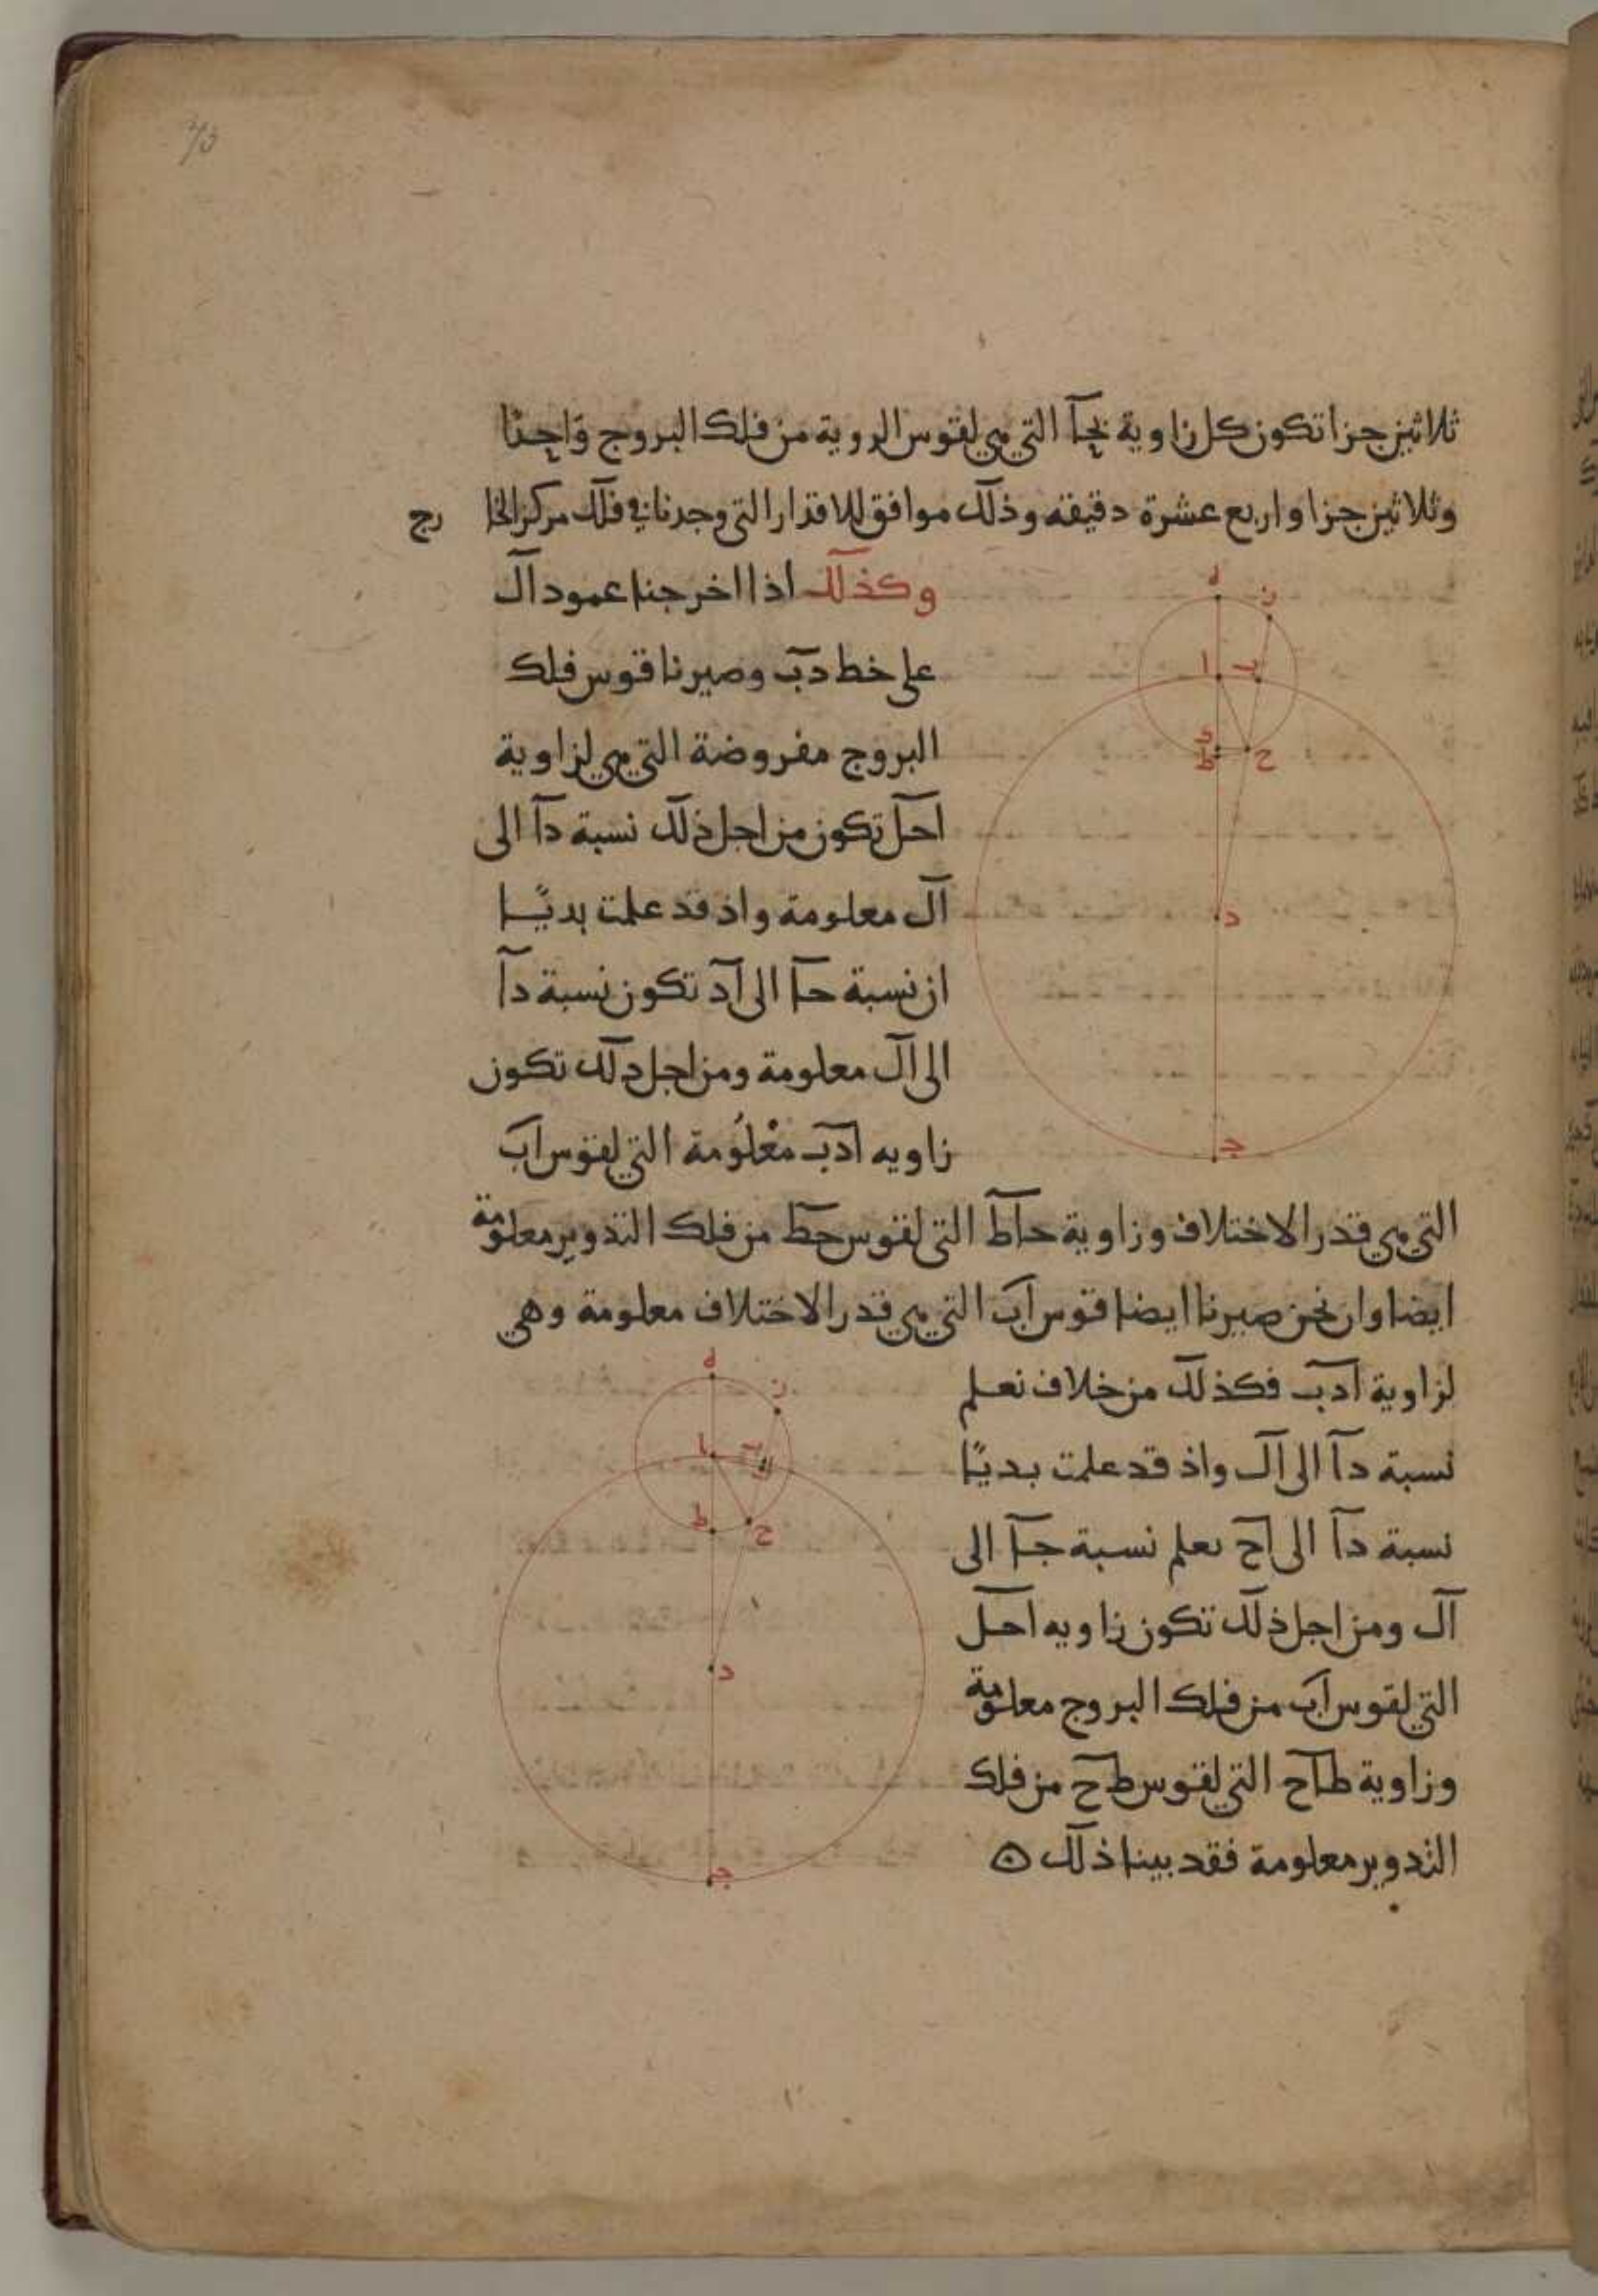 ثلاثين جزا تكون كل زاوية بحا التي هي لقوس الروية من فلك البروج واحدا
وثلاثين جزا واربع عشرة دقيقه وذلك موافق للاقدار التي وجدنا في فلك مركز الخا رج
وكذلك اذا اخرجنا عمود ال
على خط دب وصيرنا قوس فلك
البروج مفروضة التي هي لزاوية
احل تكون من اجل ذلك نسبة دا الى
ال معلومة واذ قد علمت بديًا
ان نسبة حا الى اد تكون نسبة دا
الى ال معلومة ومن اجل دلك تكون
زاويه ادب معلومة التي لقوس اب
التي هي قدر الاختلاف وزاوية حاط التي لقوس حط من فلك التدوير معلومة
ايضا وان نحن صيرنا ايضا قوس اب التي هي قدر الاختلاف معلومة وهي
لزاوية ادب فكذلك من خلاف نعلم
نسبة دا الى ال واذ قد علمت بديًا
نسبة دا الى اح نعلم نسبة جا الى
ال ومن اجل ذلك تكون زاويه احل
التي لقوس اب من فلك البروج معلومة
وزاوية طاح التي لقوس طح من فلك
التدوير معلومة فقد بينا ذلك
ه
ز
ا
ب
ط
ح
د
ج
ه
ز
ا
ب
ل
ط
ح
د
ج